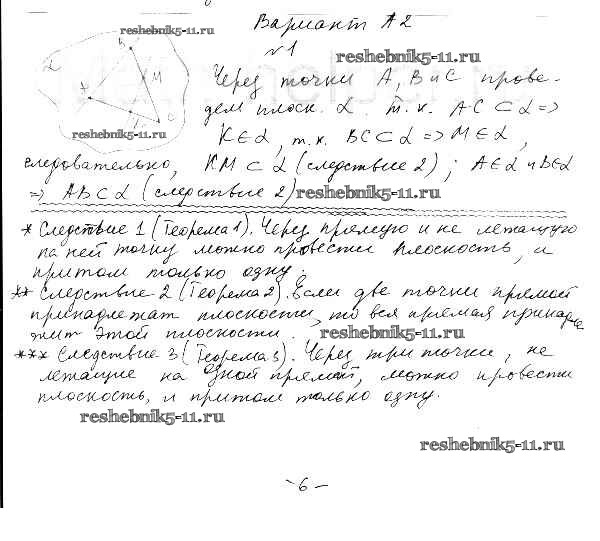 reshebnik5-11.ru
Вариант А2
№1
reshebnik5-11.ru
Через точки А, В и С прове-
дем плоск. α. т.к. АС ⊂ α =>
reshebnik5-11.ru
К ∈ α, т.к. ВС ⊂ α => М ∈ α,
следовательно, КМ ⊂ α (следствие 2); А ∈ α и В ∈ α
=> АВ ⊂ α (следствие 2) reshebnik5-11.ru
* Следствие 1 (Теорема 1). Через прямую и не лежащую
на ней точку можно провести плоскость, и
притом только одну.
** Следствие 2 (Теорема 2). Если две точки прямой
принадлежат плоскости, то вся прямая принадле
жит этой плоскости. reshebnik5-11.ru
*** Следствие 3 (Теорема 3). Через три точки, не
лежащие на одной прямой, можно провести
плоскость, и притом только одну.
reshebnik5-11.ru
reshebnik5-11.ru
-6-
α
В
М
А
К
С